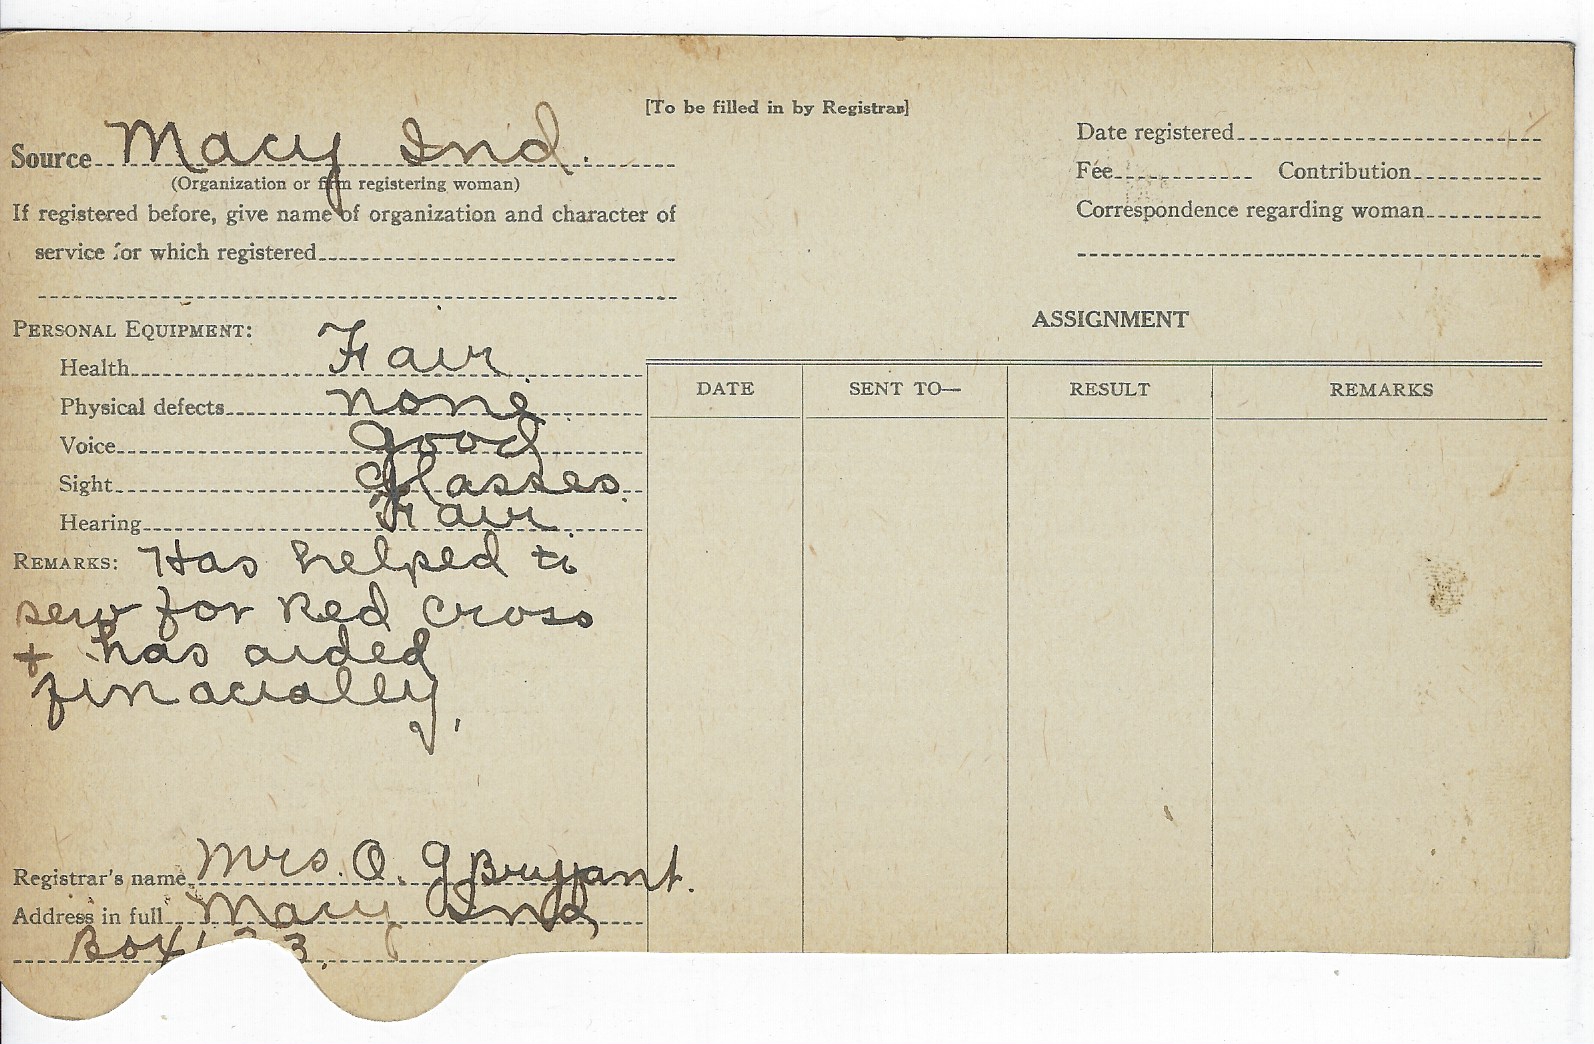 [To be filled in by Registrar]
Source Macy Ind.
(Organization or firm registering woman)
If registered before, give name of organization and character of
service for which registered
Date registered
Fee Contribution
Correspondence regarding woman
PERSONAL EQUIPMENT:
Health Fair
Physical defects none
Voice good
Sight Glasses
Hearing Fair
REMARKS: Has helped to
sew for Red Cross
+ has aided
finacially,
Registrar's name Mrs. O. G Bryant.
Address in full Macy Ind,
Box
ASSIGNMENT
DATE SENT TO— RESULT REMARKS